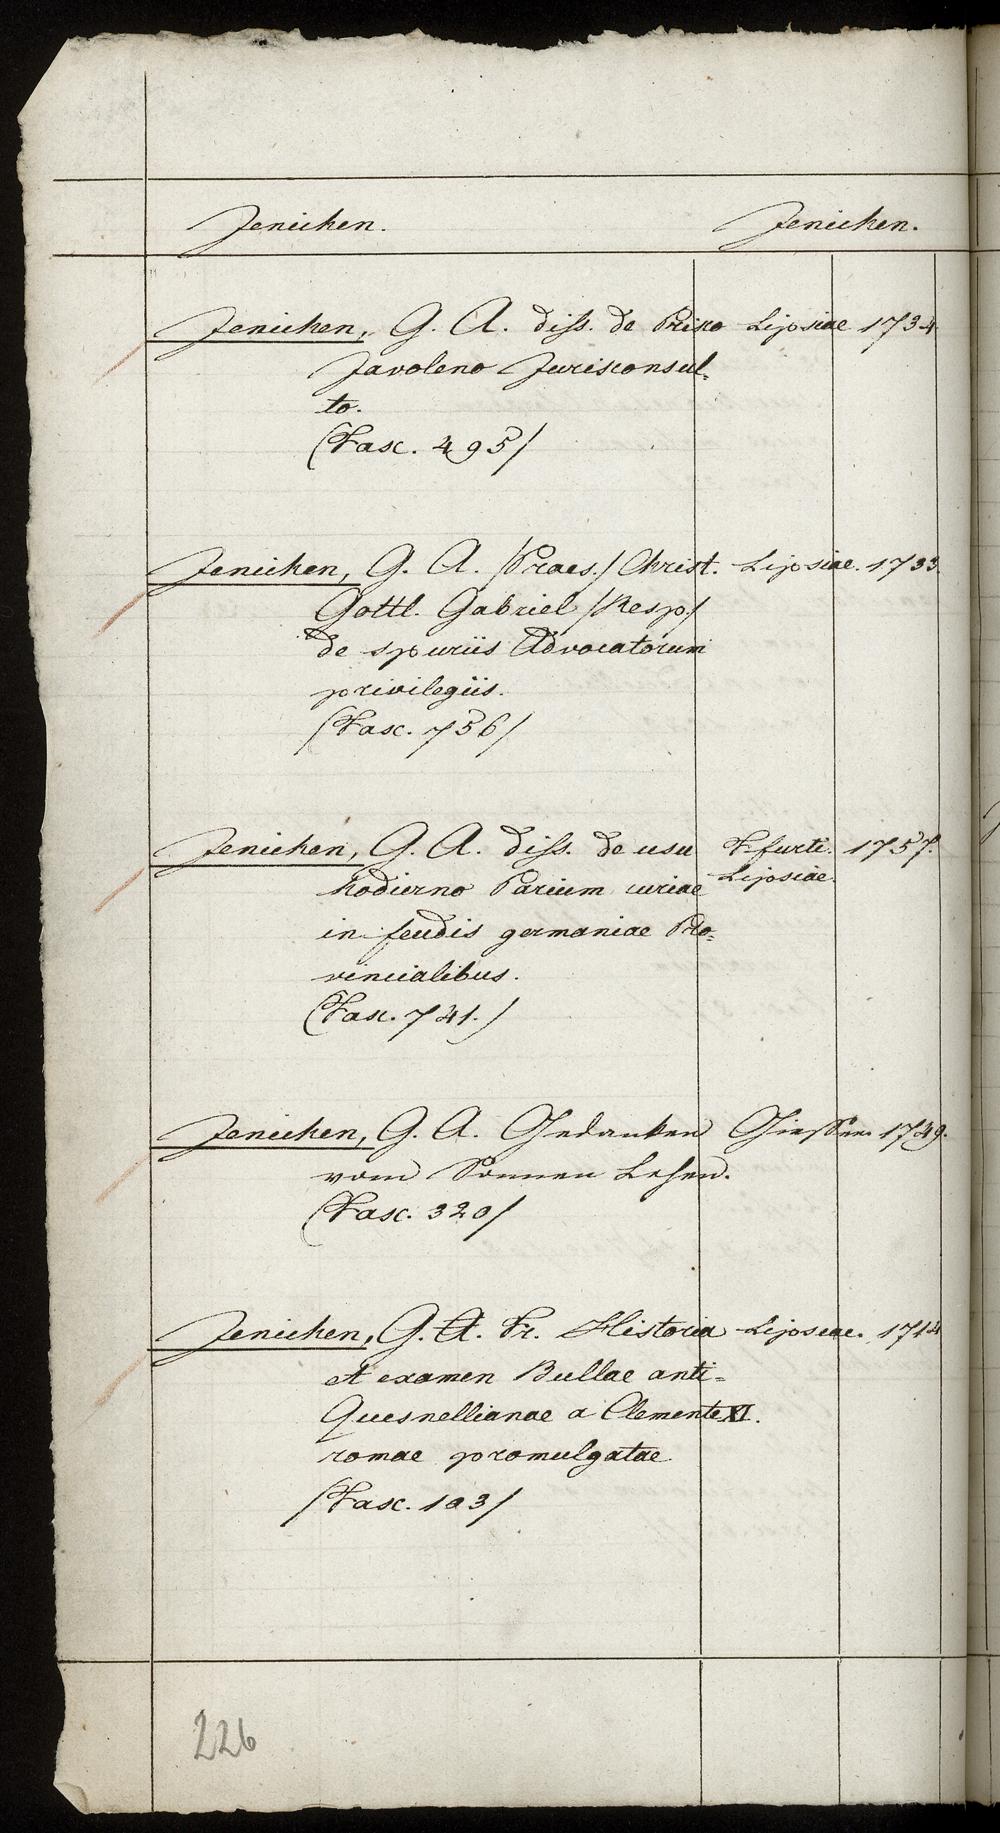 Jenichen. Jenichen.
Jenichen, G. A. diss. de Prisco Lipsiae 1734
Javoleno Jurisconsul-
to.
(Fasc. 495/
Jenichen, G. A. /Praes./ Christ. Lipsiae. 1733.
Gottl. Gabriel /Resp./
de spuriis Advocatorum
privilegiis.
/Fasc. 756/
Jenichen, G. A. diss. de usu Ffurti. 1757.
hodierno Parium curiae Lipsiae.
in feudis germaniae Pro-
vincialibus.
(Fasc. 741./
Jenichen, G. A. Gedanken Giessen 1749.
vom Sonnen Lehen.
(Fasc. 320/
Jenichen, G. A. Fr. Historia Lipsiae. 1714
et examen Bullae anti-
Quesnellianae a Clemente XI.
romae promulgatae
/Fasc. 103/
226